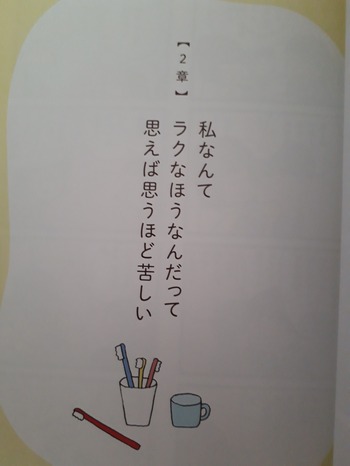 【2章】
私なんて
ラクなほうなんだって
思えば思うほど苦しい